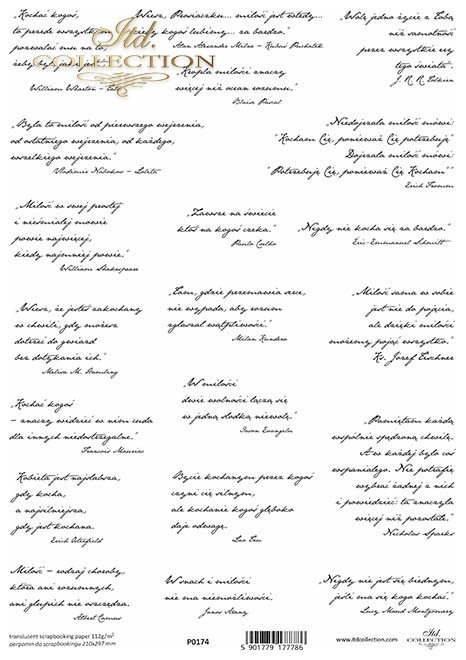 „Kochać kogoś,
to przede wszystkim
pozwalać mu na to,
żeby był jaki jest.”
William Wharton -
„Wiesz, Prosiaczku... miłość jest wtedy...
kiedy kogoś lubimy... za bardzo.”
Alan Alexander Milne - Kubuś Puchatek
„Kropla miłości znaczy
więcej niż ocean rozumu.”
Blaise Pascal
„Wolę jedno życie z Tobą
niż samotność
przez wszystkie ery
tego świata.”
J. R. R. Tolkien
Itd.
COLLECTION
„Była to miłość od pierwszego wejrzenia,
od ostatniego wejrzenia, od każdego,
wszelkiego wejrzenia.”
Vladimir Nabokov - Lolita
„Niedojrzała miłość mówi:
"Kocham Cię, ponieważ Cię potrzebuję"
Dojrzała miłość mówi:
"Potrzebuję Cię, ponieważ Cię Kocham"”
Erich Fromm
„Miłość w swej prostej
i nieśmiałej mowie
powie najwięcej,
kiedy najmniej powie.”
William Shakespeare
„Zawsze na świecie
ktoś na kogoś czeka.”
Paulo Coelho
„Nigdy nie kocha się za bardzo.”
Eric-Emmanuel Schmitt
„Wiesz, że jesteś zakochany
w chwili, gdy możesz
dotrzeć do gwiazd
bez dotykania ich.”
Melisa M.
„Tam, gdzie przemawia serce,
nie wypada, aby rozum
zgłaszał wątpliwości.”
Milan Kundera
„Miłość sama w sobie
jest nie do pojęcia,
ale dzięki miłości
możemy pojąć wszystko.”
Ks. Józef Tischner
„Kochać kogoś
- znaczy widzieć w nim cuda
dla innych niedostrzegalne.”
Francois Mauriac
„W miłości
dwie wolności łączą się
w jedną słodką niewolę.”
Jason Evangelu
„Pamiętam każdą
wspólnie spędzoną chwilę.
A w każdej było coś
wspaniałego. Nie potrafię
wybrać żadnej z nich
i powiedzieć: ta znaczyła
więcej niż pozostałe.”
Nicholas Sparks
Kobieta jest najsłabsza,
gdy kocha,
a najsilniejsza,
gdy jest kochana.
Erich Osterfield
Bycie kochanym przez kogoś
czyni cię silnym,
ale kochanie kogoś głęboko
daje odwagę.
Lao Tzu
Miłość - rodzaj choroby,
która ani rozumnych,
ani głupich nie oszczędza.
Albert Camus
W snach i miłości
nie ma niemożliwości.
Janos Arany
„Nigdy nie jest się biednym,
jeśli ma się kogo kochać.”
Lucy Maud Montgomery
translucent scrapbooking paper 112g/m²
pergamin do scrapbookingu 210x297 mm
P0174
5 901779 177786
www.itdcollection.com
Itd.
COLLECTION